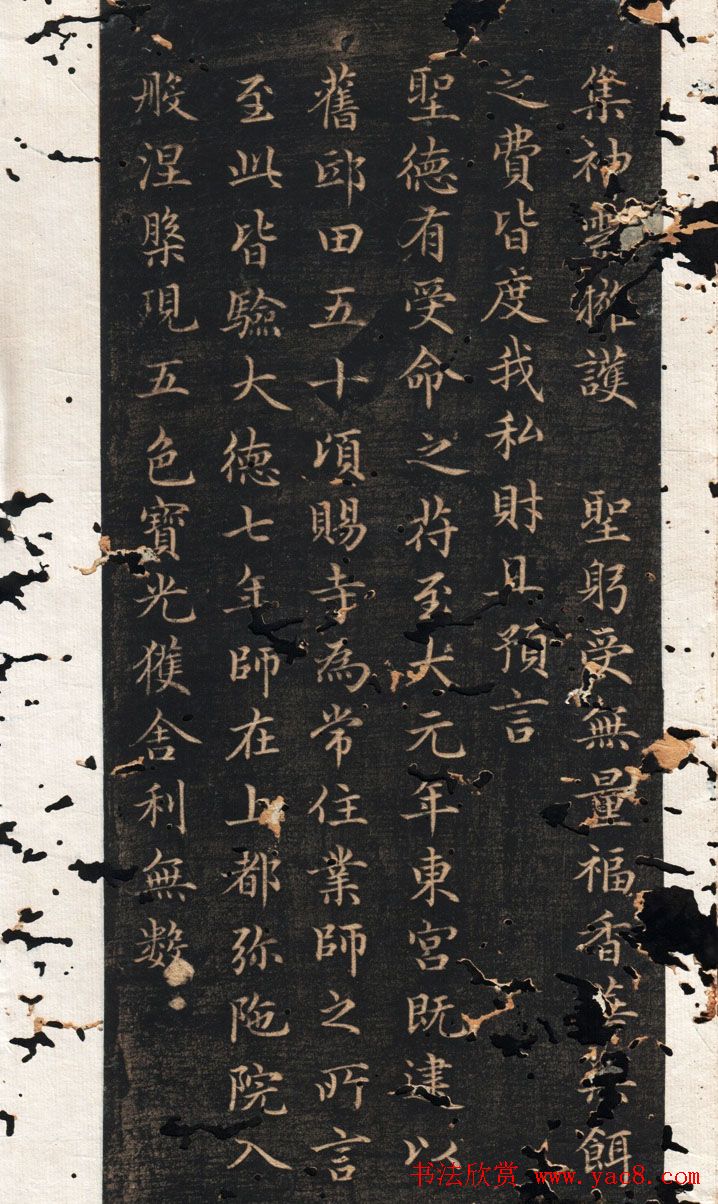 集神雲擁護　聖躬受無量福香華果餌
之費皆度我私財且預言
聖德有受命之苻至大元年東宮既建以
舊邸田五十頃賜寺為常住業師之所言
至此皆驗大德七年師在上都弥陁院入
般涅槃現五色寶光獲舎利無數
书法欣赏 www.yac8.com